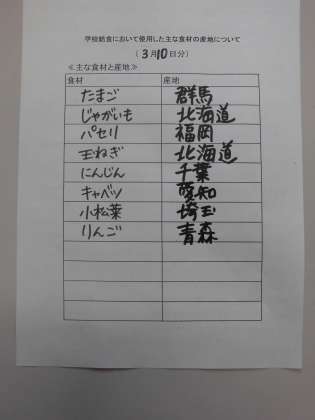 学校給食において使用した主な食材の産地について
（3月10日分）
≪主な食材と産地≫
食材 産地
たまご 群馬
じゃがいも 北海道
パセリ 福岡
玉ねぎ 北海道
にんじん 千葉
キャベツ 愛知
小松菜 埼玉
りんご 青森